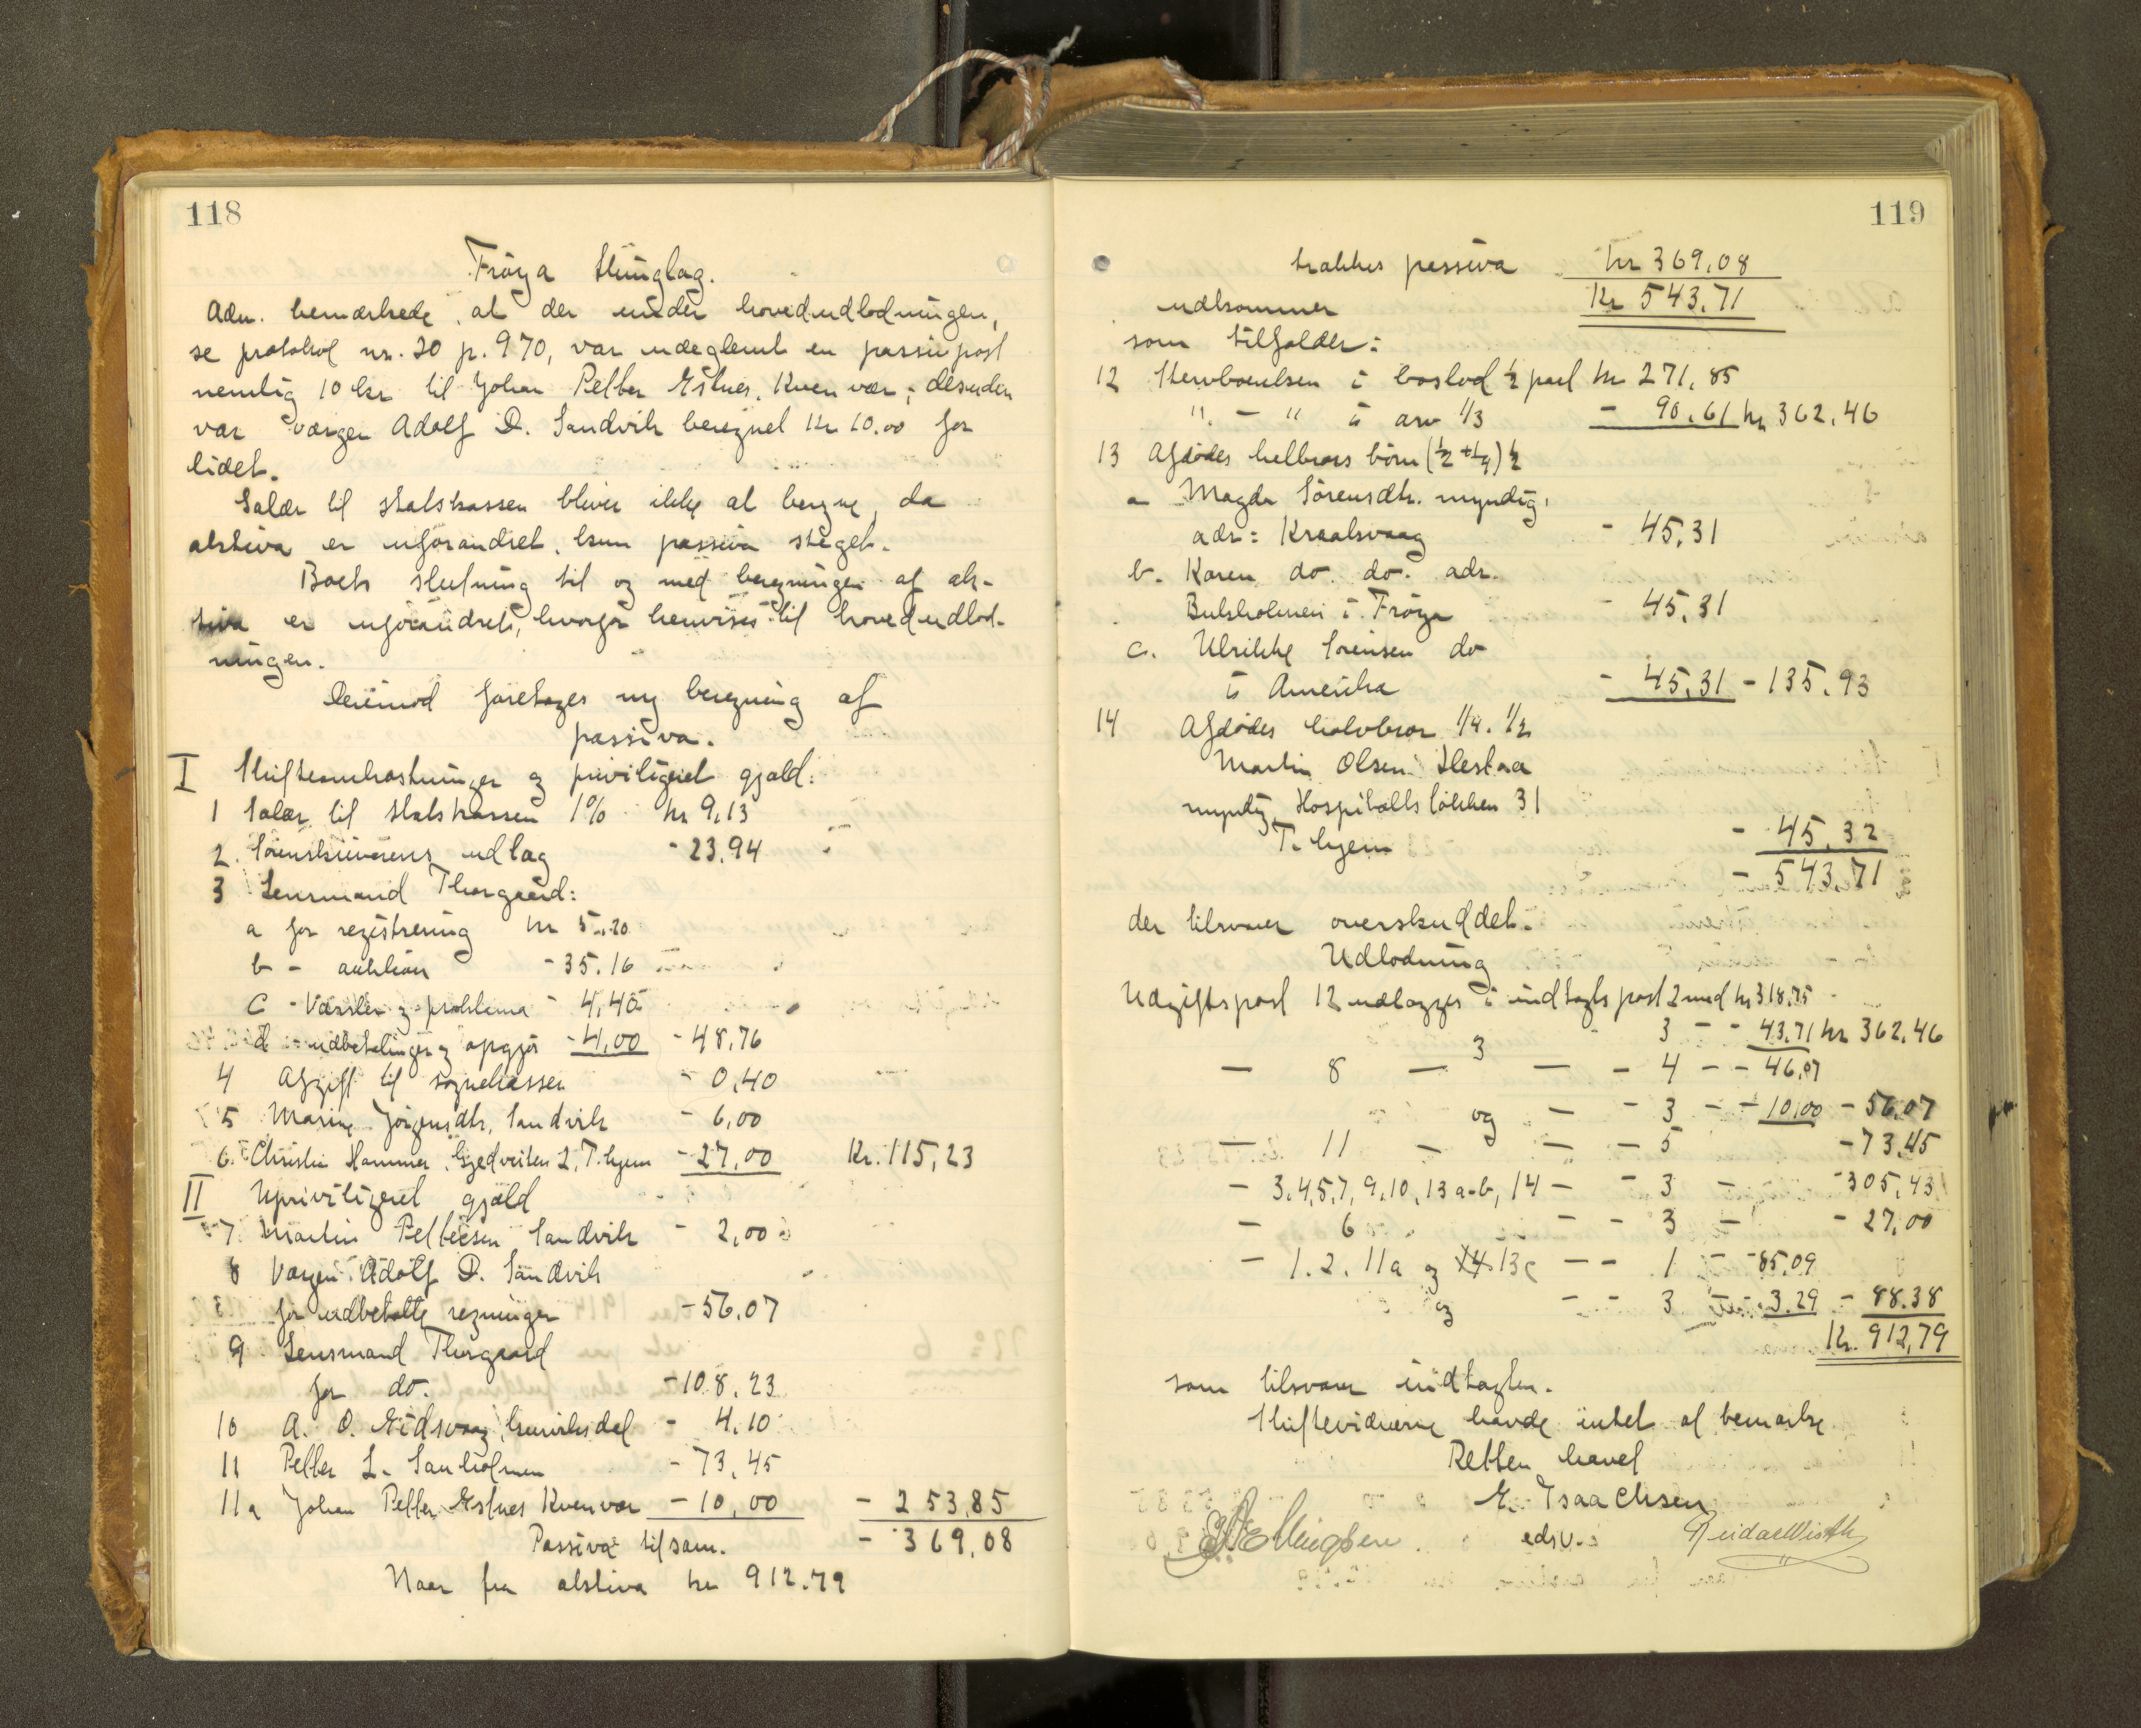 118
Frøya thinglag.
Adm. bemærkede, at der under hovedudlodningen,
se protokol nr. 20 p. 970, var udeglemt en passivpost
nemlig 10 kr til Johan Petter Estnes, Kvenvær; desuden
var værgen Adolf D. Sandvik beregnet Kr 10.00 for
lidet.
Salær til statskassen bliver ikke at beregne, da
aktiva er uforandret, kun passiva steget.
Boets slutning til og med beregningen af ak-
tiva er uforandret, hvorfor henvises til hovedudlod-
ningen.
Derimod foretages ny beregning af
passiva.
I Skifteomkostninger og priviligeret gjæld:
1 Salær til statskassen 1% kr 9,13
2. Sorenskriverens udlag - 23,94
3 Lensmand Thorgaard:
a for registrering kr 5.20
b - auktion - 35.16
c - Varsler og proklama - 4,40
d - udbetalinger og opgjør - 4,00 - 48,76
4 Afgift til sognekassen - 0,40
5 Marie Jørgensdtr. Sandvik - 6,00
6. Christin Hammer, Gjedveiten 2, T.hjem - 27,00 Kr. 115,23
II Upriviligeret gjæld
7. Martin Pettersen Sandvik - 2,00
8 Værgen Adolf D. Sandvik
for udbetalte regninger - 56.07
9 Lensmand Thorgaard
for do. - 108,23
10 A. O. Eidsvaag, - 4,10
11 Petter L. Sanholmen - 73,45
11a Johan Petter Estnes Kvenvær - 10,00 - 253,85
Passiva tilsam. - 369,08
Naar fra aktiva kr 912.79
119
trækkes passiva kr 369,08
udkommer Kr 543,71
som tilfalder:
12 Sterbboenken i boslod ½ part kr 271,85
" - " i arv 1/3 - 90.61 kr 362,46
13 Afdødes helbrors børn (½ + ¼) ½
a Magda Sørensdtr. myndig,
adr: Kraakvaag - 45,31
b. Karen do. do. adr.
Buskholmen i Frøya - 45,31
c. Ulrikke Sørensen do
i Amerika - 45,31 - 135,93
14 Afdødes halvbror 1/4. 1/2
Martin Olsen Hestnæ
myndig Hospitalsløkken 31
T.hjem - 45,32
- 543,71
der tilsvarer overskuddet.
Udlodning
Udgiftspost 12 udlægges i indtægtspost 2 med kr 318.75
3 - - 43,71 kr 362,46
— 8 — — - 4 - - 46,07
og — - 3 - - 10,00 - 56,07
— 11 - — - 5 - 73,45
- 3,4,5,7,9,10,13 a-b, 14 - - 3 - - 305,43
- 6 - - 3 - - 27,00
- 1. 2. 11a og 13c - - 1 - - 85,09
og - - 3 - 3.29 - 88.38
Kr. 912,79
som tilsvarer indtægten.
Skiftevidnerne havde intet at bemærke.
Retten hævet
E. Isaachsen
edsv.
Ellingsen
Reidar Wisth